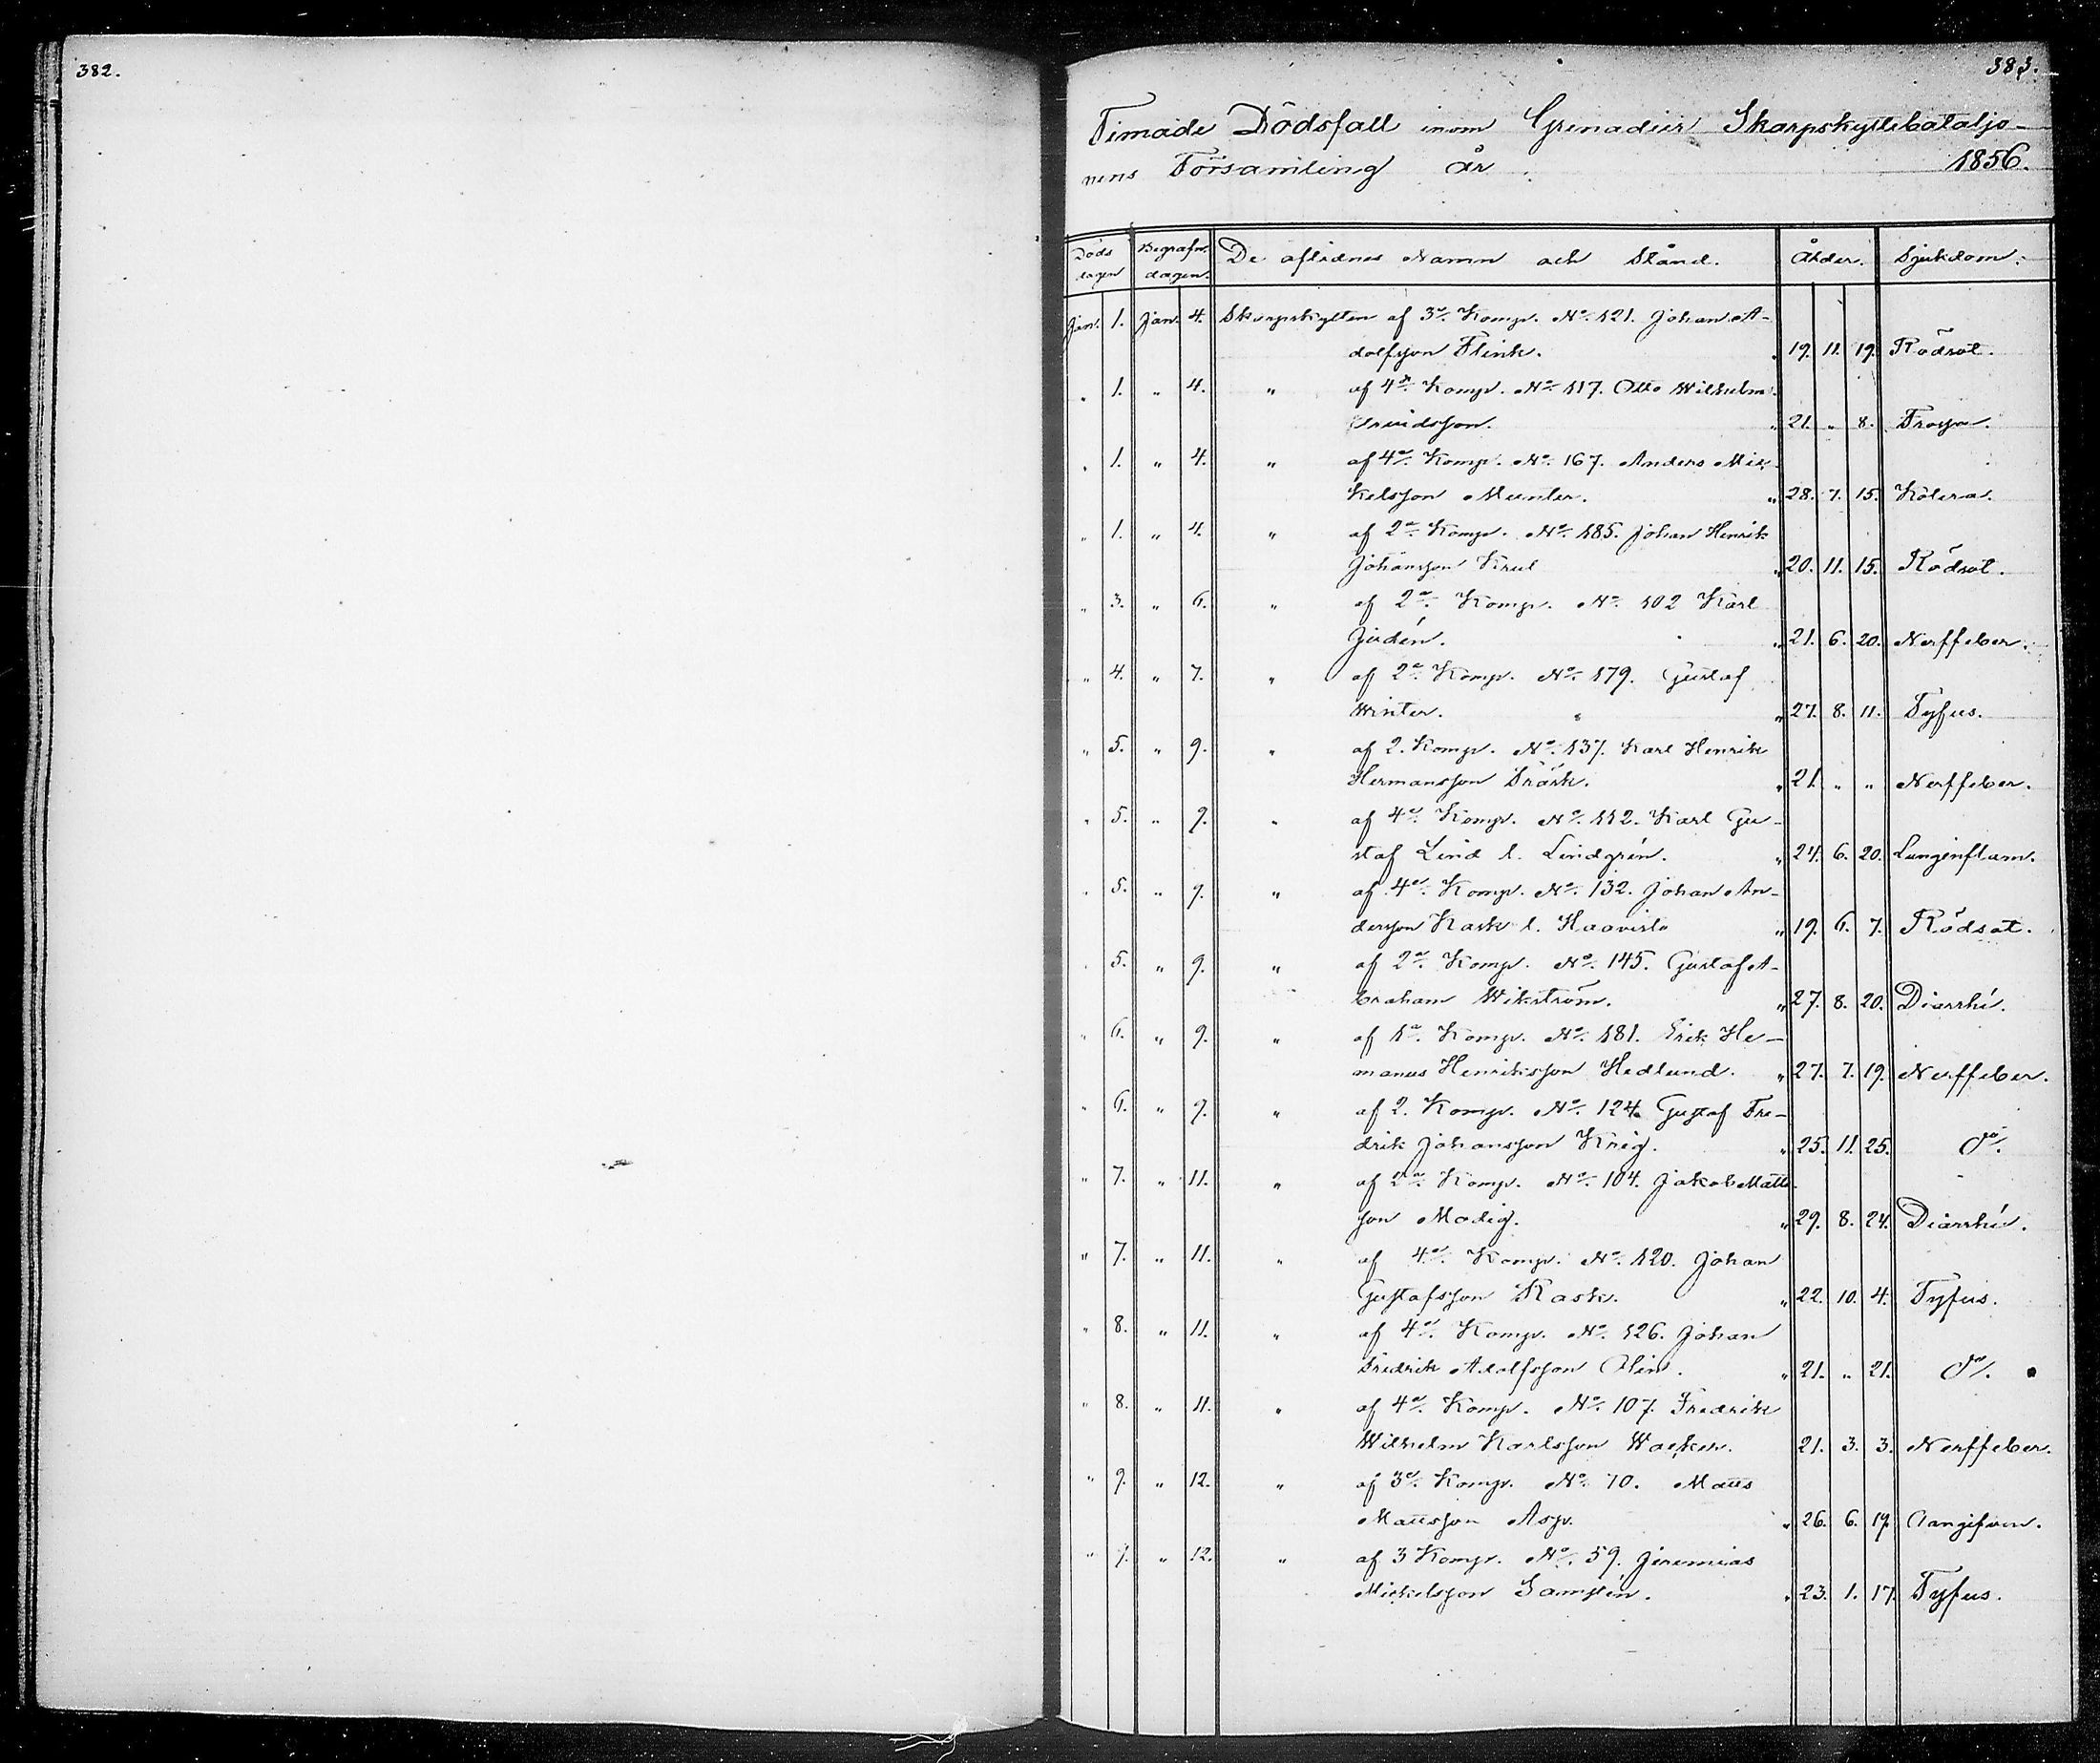 382.
383.
Timade Dödsfall inom Grenadier Skarpskyttebataljo-
nens Församling år 1856.
Döds dagen Begrafn. dagen. De aflidnes Namn och Stånd. Ålder. Sjukdom.
Jan. 1. Jan. 4. Skarpskytten af 3e. Komp. No. 121. Johan A-
dolfsson Flink. 19. 11. 19. Rödsot.
" 1. " 4. " af 4e. Komp. No. 117. Otto Wilhelm
21. " 8. Frossa.
" 1. " 4. " af 4e. Komp. No. 167. Anders Mik-
kelsson Munter. " 28. 7. 15. Kolera.
" 1. " 4. " af 2a. Komp. No. 185. Johan Henrik
Johansson Krut " 20. 11. 15. Rödsot.
" 3. " 6. " af 2a. Komp. No. 102 Karl
Judén. " 21. 6. 20. Nerffeber.
" 4. " 7. " af 2a. Komp. No. 179. Gustaf
Winter. " 27. 8. 11. Tyfus.
" 5. " 9. " af 2. Komp. No. 137. Karl Henrik
Hermansson Träsk. " 21. " " Nerffeber.
" 5. " 9. " af 4e. Komp. No. 112. Karl Gu-
staf Lind l. Lindgrén. " 24. 6. 20. Lunginflam.
" 5. " 9. " af 4e. Komp. No. 132. Johan An-
dersson Rask l. Haavisto " 19. 6. 7. Rödsot.
" 5. " 9. " af 2a. Komp. No. 145. Gustaf A-
braham Wikström. " 27. 8. 20. Diarrhé.
" 6. " 9. " af 1a. Komp. No. 181. Erik He-
manus Henriksson Hedlund. " 27. 7. 19. Nerffeber.
" 6. " 9. " af 2. Komp. No. 124. Gustaf Fre-
drik Johansson Krig. " 25. 11. 25. do.
" 7. " 11. " af 2a. Komp. No. 104. Jakob Matts-
son Modig. " 29. 8. 24. Diarrhé.
" 7. " 11. " af 4e. Komp. No. 120. Johan
Gustafsson Rask. " 22. 10. 4. Tyfus.
" 8. " 11. " af 4e. Komp. No. 126. Johan
Fredrik Adolfsson Olin. " 21. " 21. do.
" 8. " 11. " af 4e. Komp. No. 107. Fredrik
Wilhelm Karlsson Wacker. 21. 3. 3. Nerffeber.
" 9. " 12. " af 3e. Komp. No. 70. Matts
Mattsson Asp. " 26. 6. 19.
" 9. " 12. " af 3 Komp. No. 59. Jeremias
Mickelsson Gamstén. " 23. 1. 17. Tyfus.